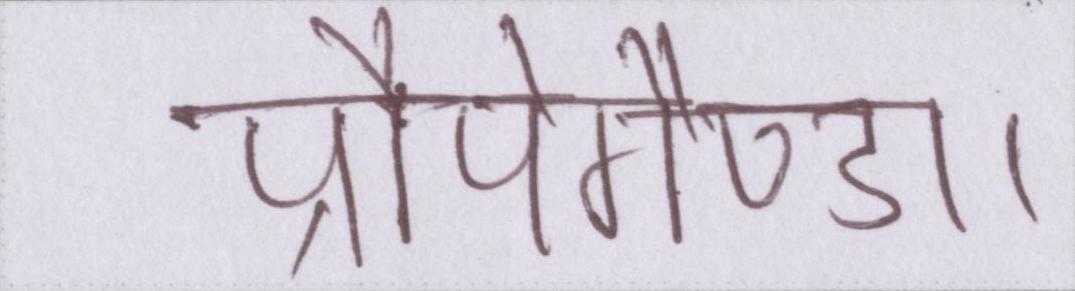 प्रौपेगैण्डा।